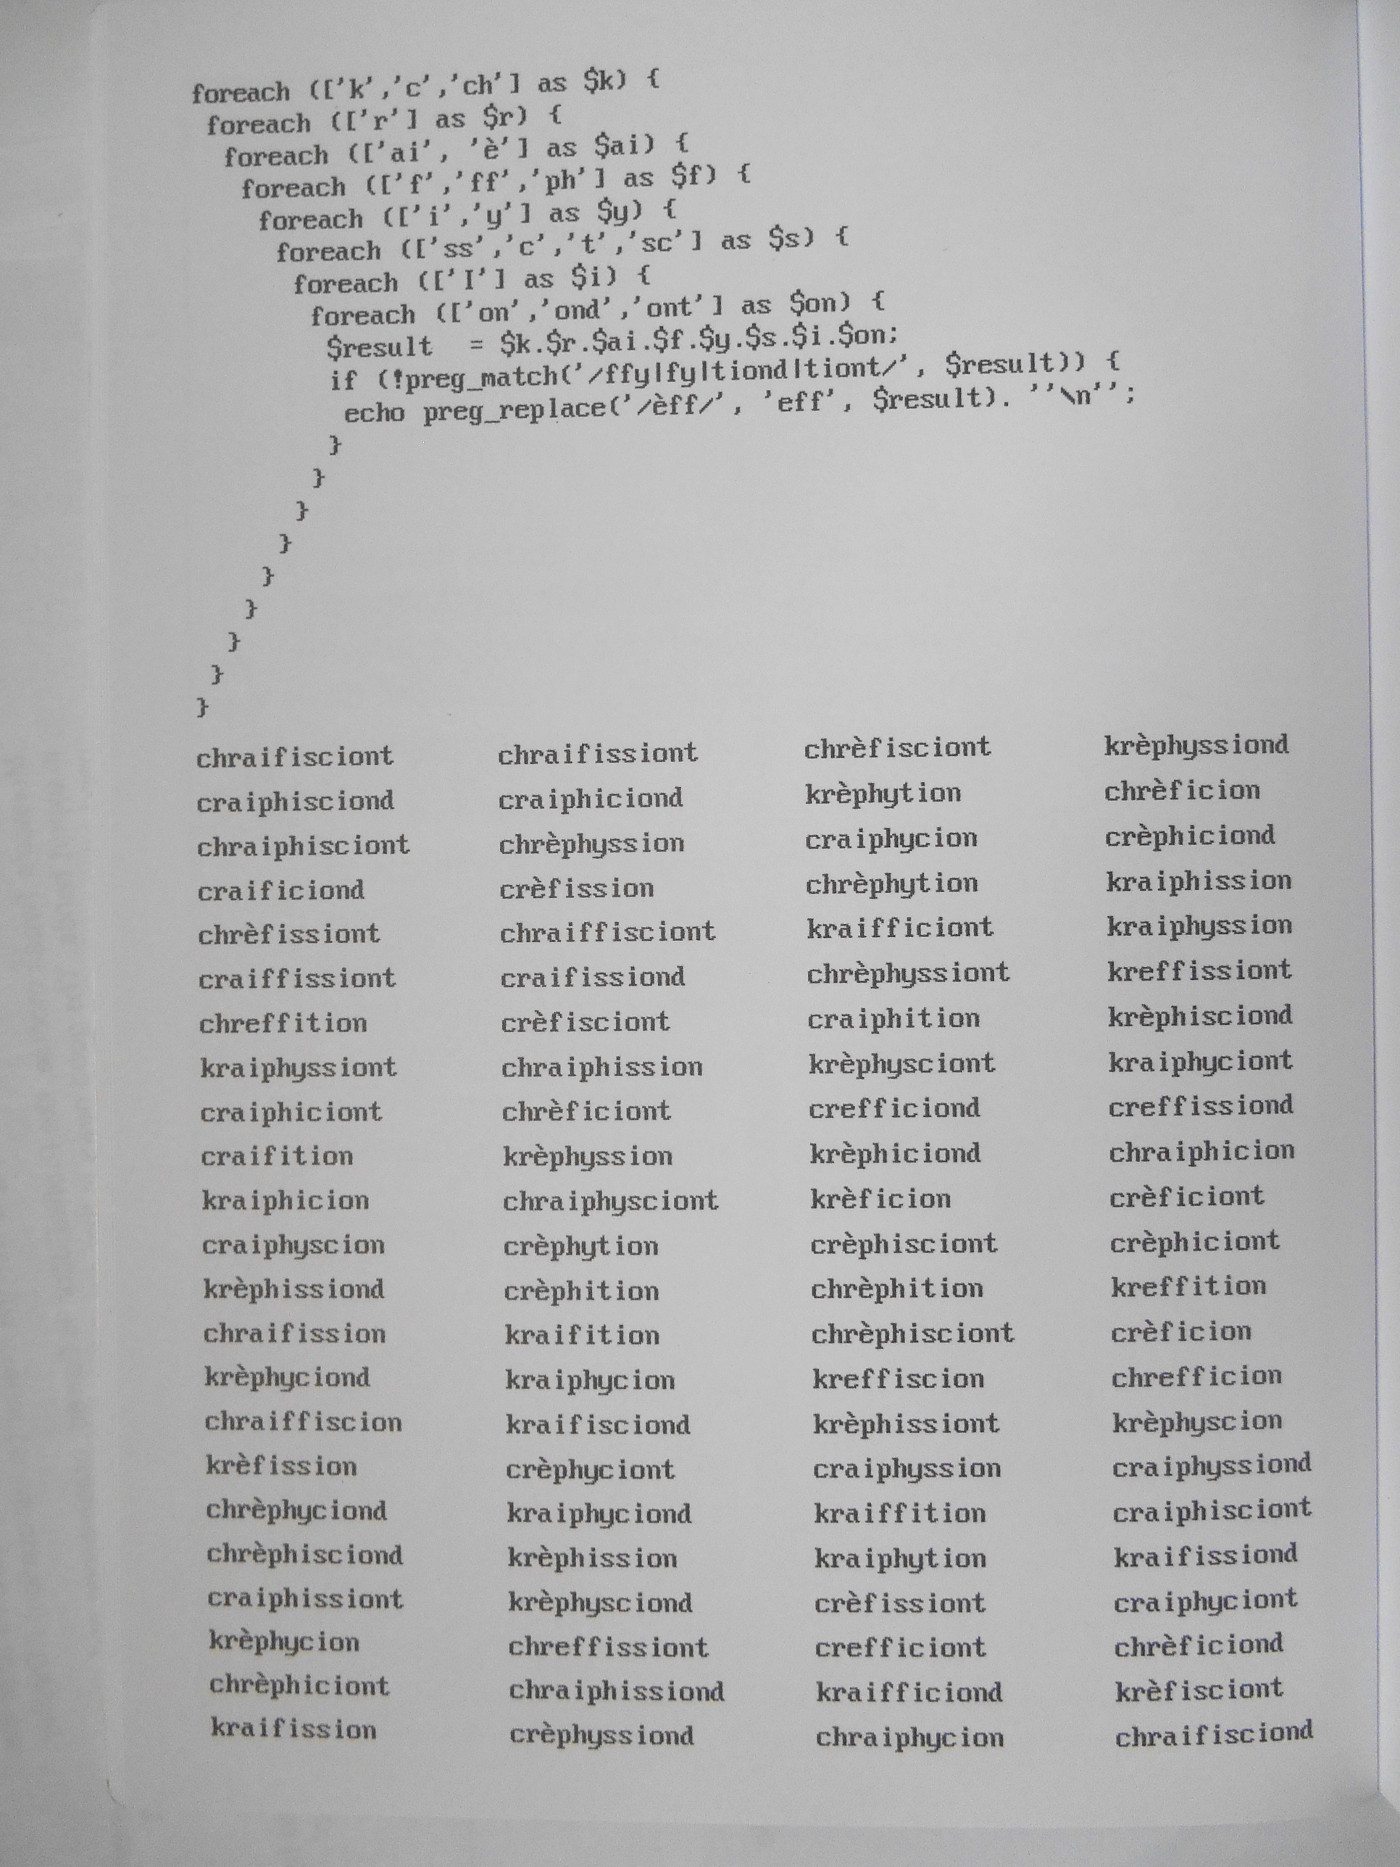 foreach (['k','c','ch'] as $k) {
foreach (['r'] as $r) {
foreach (['ai', 'è'] as $ai) {
foreach (['f','ff','ph'] as $f) {
foreach (['i','y'] as $y) {
foreach (['ss','c','t','sc'] as $s) {
foreach (['I'] as $i) {
foreach (['on','ond','ont'] as $on) {
$result = $k.$r.$ai.$f.$y.$s.$i.$on;
if (!preg_match('/ffy|fy|tiond|tiont/', $result)) {
echo preg_replace('/èff/', 'eff', $result). ''\n'';
}
}
}
}
}
}
}
}
}
chraifisciont chraifissiont chrèfisciont krèphyssiond
craiphisciond craiphiciond krèphytion chrèficion
chraiphisciont chrèphyssion craiphycion crèphiciond
craificiond crèfission chrèphytion kraiphission
chrèfissiont chraiffisciont kraifficiont kraiphyssion
craiffissiont craifissiond chrèphyssiont kreffissiont
chreffition crèfisciont craiphition krèphisciond
kraiphyssiont chraiphission krèphysciont kraiphyciont
craiphiciont chrèficiont crefficiond creffissiond
craifition krèphyssion krèphiciond chraiphicion
kraiphicion chraiphysciont krèficion crèficiont
craiphyscion crèphytion crèphisciont crèphiciont
krèphissiond crèphition chrèphition kreffition
chraifission kraifition chrèphisciont crèficion
krèphyciond kraiphycion kreffiscion chrefficion
chraiffiscion kraifisciond krèphissiont krèphyscion
krèfission crèphyciont craiphyssion craiphyssiond
chrèphyciond kraiphyciond kraiffition craiphisciont
chrèphisciond krèphission kraiphytion kraifissiond
craiphissiont krèphysciond crèfissiont craiphyciont
krèphycion chreffissiont crefficiont chrèficiond
chrèphiciont chraiphissiond kraifficiond krèfisciont
kraifission crèphyssiond chraiphycion chraifisciond